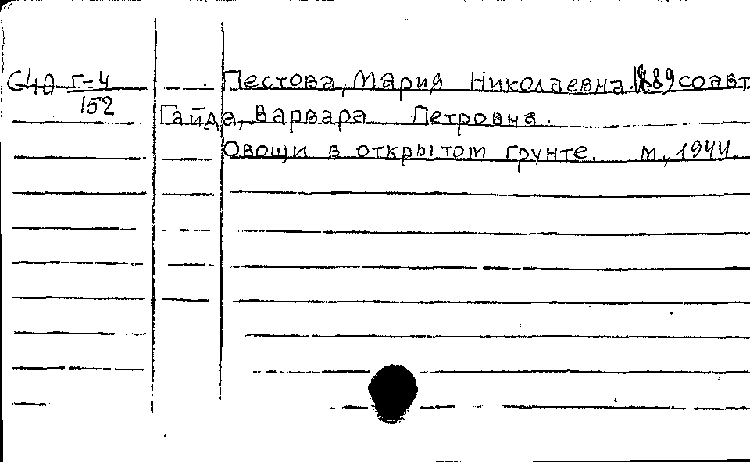 G40 Г-4 Пестова, Мария Николаевна 1889 соавт
152 Гайда, Варвара Петровна.
Овощи в открытом грунте. М, 1944.